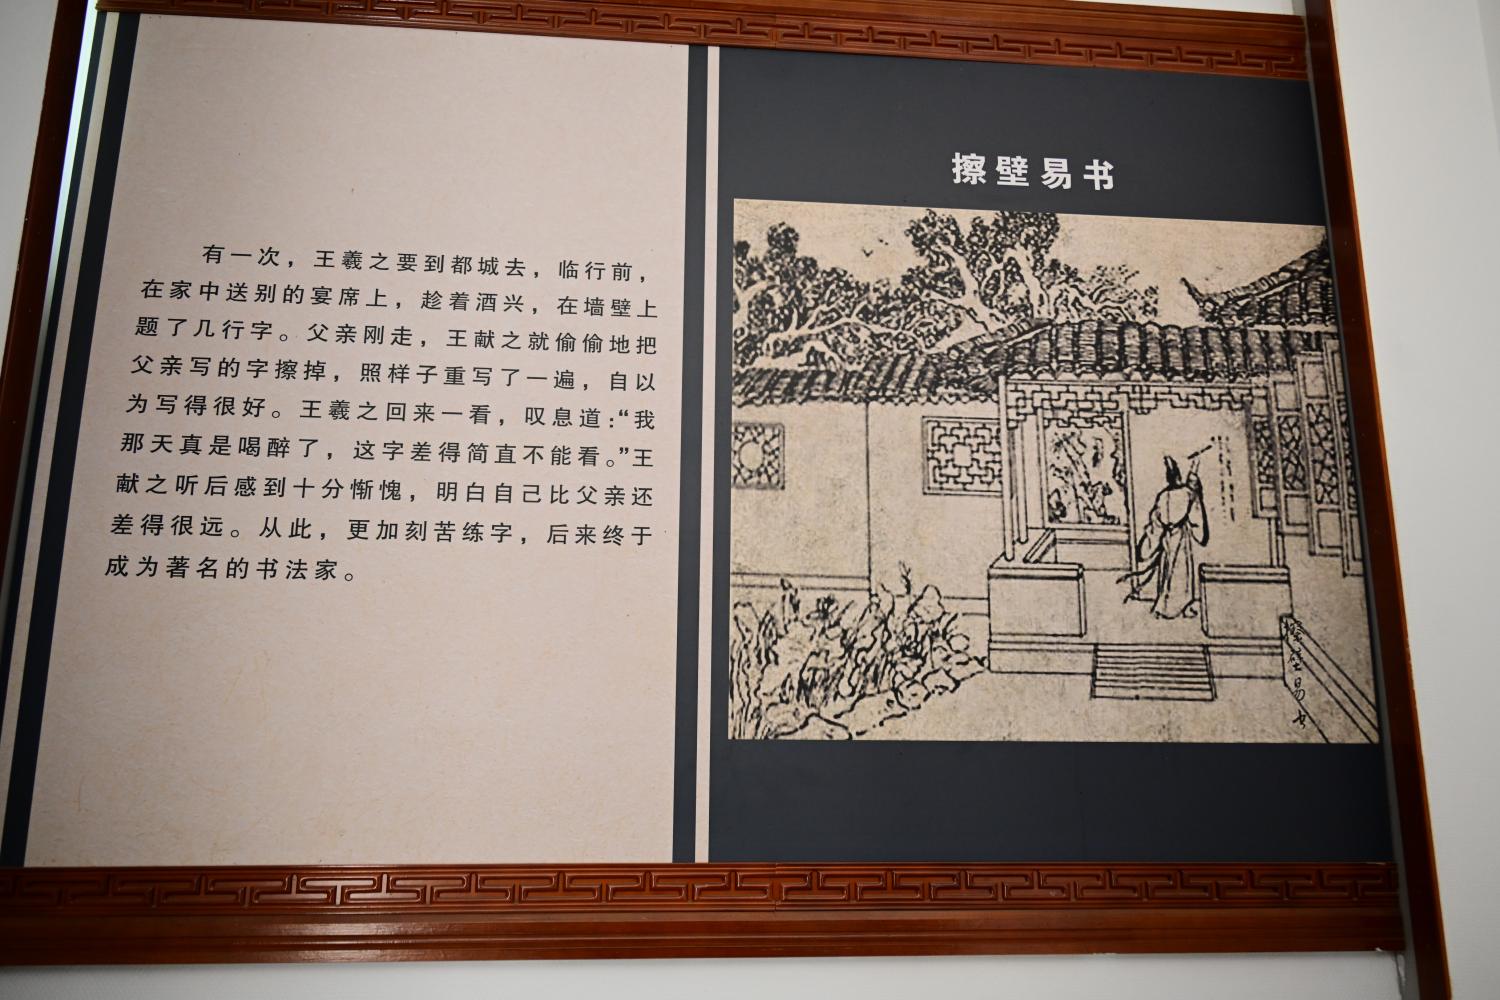 有一次，王羲之要到都城去，临行前，
在家中送别的宴席上，趁着酒兴，在墙壁上
题了几行字。父亲刚走，王献之就偷偷地把
父亲写的字擦掉，照样子重写了一遍，自以
为写得很好。王羲之回来一看，叹息道：“我
那天真是喝醉了，这字差得简直不能看。”王
献之听后感到十分惭愧，明白自己比父亲还
差得很远。从此，更加刻苦练字，后来终于
成为著名的书法家。
擦壁易书
擦壁易书